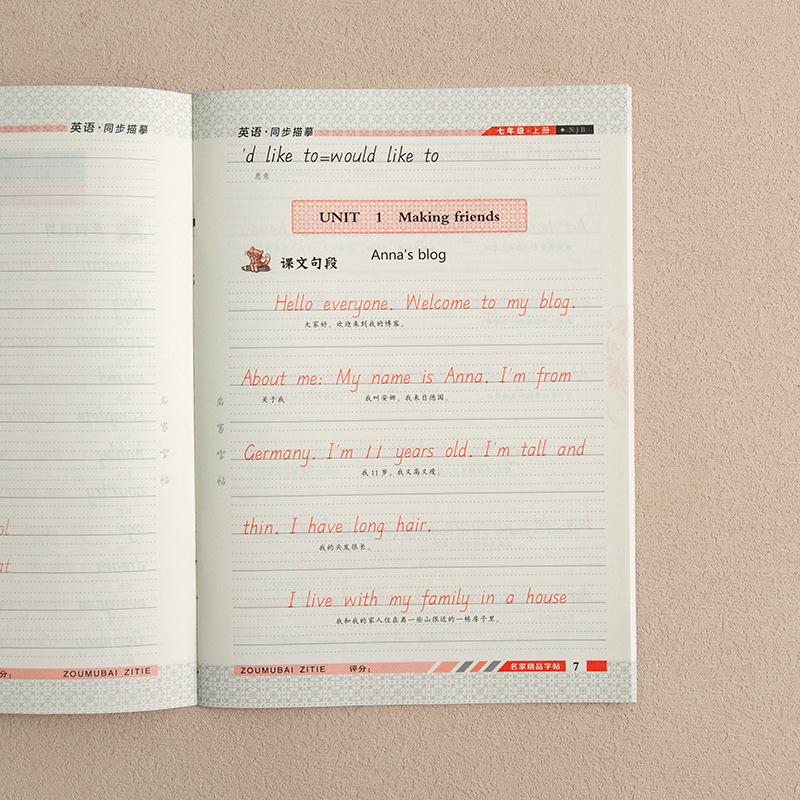 英语·同步描摹
ol
at
分:
ZOUMUBAI ZITIE
英语·同步描摹
七年级·上册
NJB
'd like to=would like to
愿意
UNIT 1 Making friends
课文句段
Anna's blog
Hello everyone. Welcome to my blog.
大家好。欢迎来到我的博客。
About me: My name is Anna. I'm from
关于我 我叫安娜。我来自德国。
Germany. I'm 11 years old. I'm tall and
我 11 岁。我又高又瘦。
thin. I have long hair.
我的头发很长。
I live with my family in a house
我和我的家人住在离一些山很近的一栋房子里。
名家字帖
ZOUMUBAI ZITIE
评分:
名家精品字帖
7